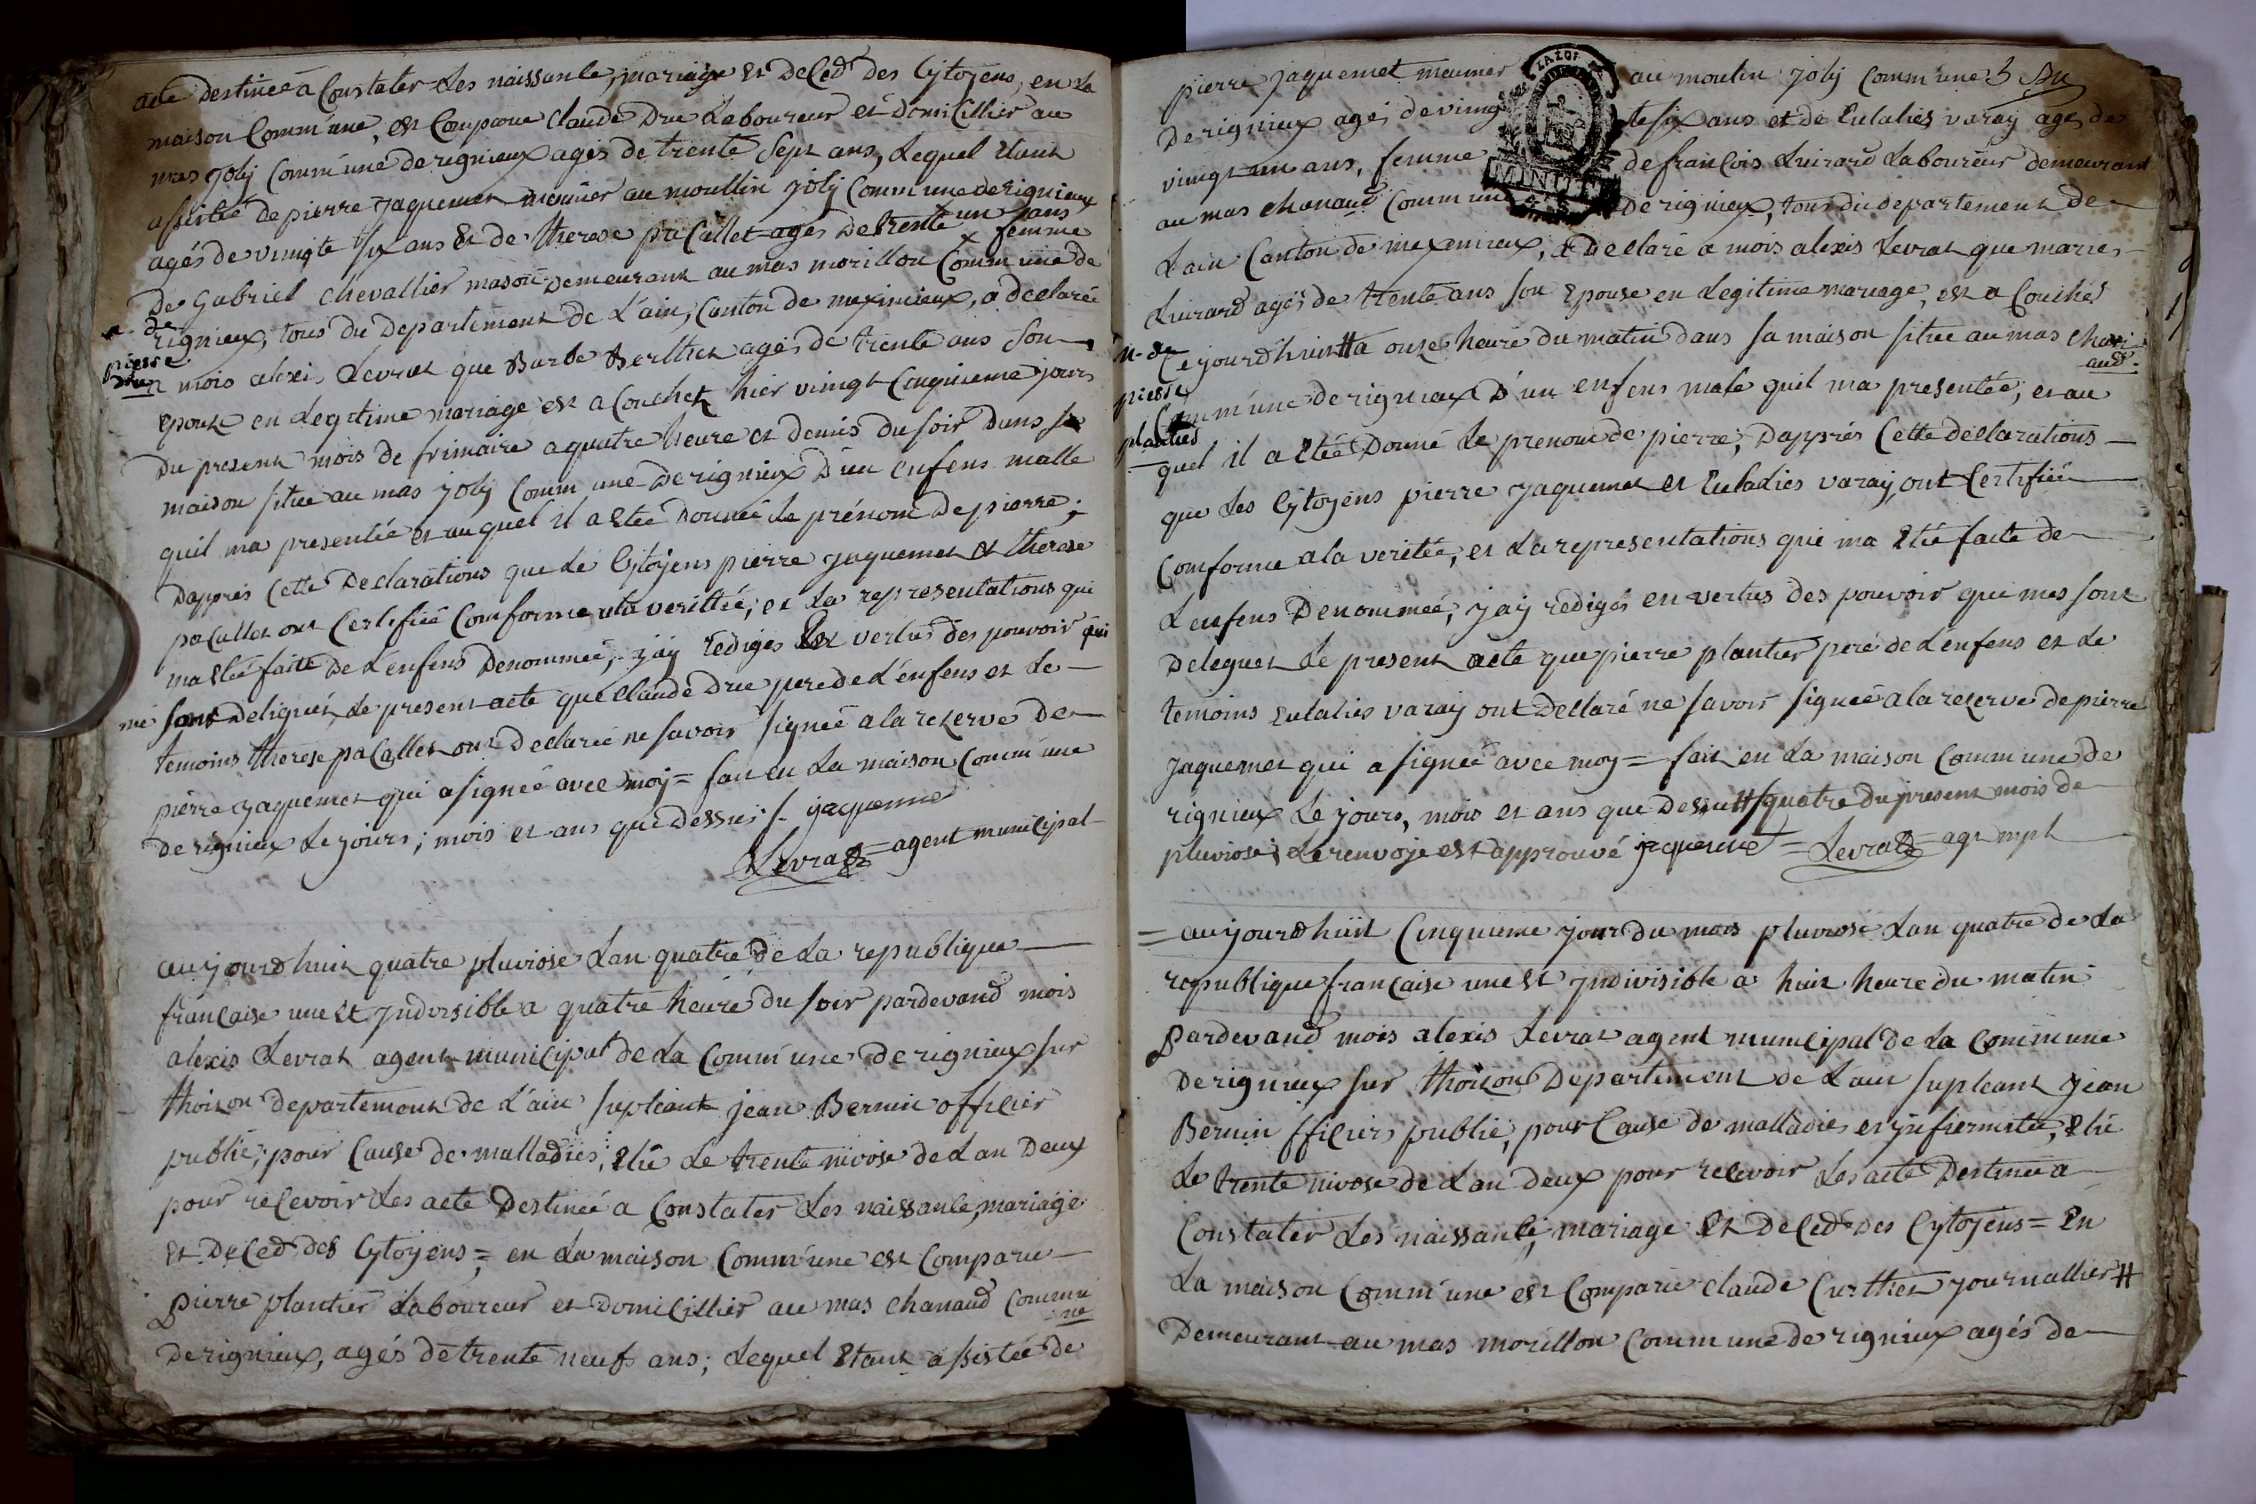 acte destineé a Constater Les naissance, mariage et Deced des Cytoyens, en La
maison Comm'une, est Comparue Claude Due Laboureur et Domicillier au
mas Joly Comm'une de rignieux agés de trente Sept ans, Lequel Etant
assisté de pierre Jaquemet meunier au moullin Joly Commune de rignieux
agés de vimgte six ans Et de therese paCallet agés De trente un ans femme
De Gabriel Chevallier mason Demeurant au mas morillon Comm'une de
rignieux, tous du Departement de L'ain, Canton de meximieux, a declareé
n. de
pierre
Due
a mois alexis Levrat que Barbe Berthet agés de trente ans Son
Epouse en Legitime mariage est aCouchet hier vimgt Cinquieme jours
Du present mois de frimaire a quatre heure et demis du soir Dans sa
maison situé au mas joly Comm'une De rignieux D'un enfens malle
quil ma presentée et au quel il a Etée Donneé Le prénom De pierre;
Dapprés Cette Declarations que Le Cytoyens pierre Jaquemet et therese
paCallet ont Certifiée Comforme ala verittée; et La representations qui
ma Eteé faite De L'enfens Denommeé, j'ay rediges En vertus des pouvoir qui
me sont Deligués, Le present acte que Claude Due pere de L'enfens et Le
temoins therese paCallet ont Declaree ne savoir signeé ala reserve De
pierre Jaquemet qui a signeé avec moy = fait en La maison Comm'une
de rignieux Le jours; mois et ans que dessus /. jaquemet
Levrat = agent municipal
aujourdhuit quatre pluviose Lan quatre de La republique
française une et Jndivisible a quatre heure du soir pardevand mois
alexis Levrat agent municipal de La Comm'une De rignieux sur
thoison departement de L'ain supleant jean Bernin officier
publié; pour Cause de malladies; Elue Le trente nivose de Lan Deux
pour reCevoir Les acte Destineé a Constater Les naissance, mariage
Et DeCed des Cytoyens = en La maison Comm'une est Comparue
pierre plantier Laboureur et Domicillier au mas Chanaud Commu
ne
De rignieux, agés de trente neuf ans; Lequel Etant assistée de
pierre Jaquemet meunier au moulin Joly Comm'une
De rignieux agés de vimgte six ans et de Eulalies varay agés de
vimgt un ans, femme de françois Luirard Laboureur demeurant
au mas Chanaud Commune De rignieux, tous du departement de
L'ain Canton de meximieux, a Declaré a mois alexis Levrat que marie
Luirard agés de trente ans son Epouse en Legitime mariage, est a Couchés
n. de
pierre
plantier
Cejourdhuit # a onze heure du matin dans sa maison situe au mas Chan
aud.
Comm'une de rignieux D'un enfens male quil ma presentée; et au
quel il a Etée Donné Le prenom de pierre; Dapprés Cette declarations
que Les Cytoyens pierre Jaquemet et Euladies varay ont Certifiée
Comforme ala veritée; et La representations qui ma Eteé faite de
L'enfens Denommeé, j'ay rediges en vertus des pouvoir qui mes sont
Deleguet Le present acte que pierre plantier pere de L'enfens et Le
temoins Eulalies varay ont Dellaré ne savoir signeé ala reserve de pierre
Jaquemet qui a signeé avec moy = fait en La maison Comm'une de
rignieux Le jours, mois et ans que Dessu # quatre du present mois de
pluviose; Le renvoje est approuvé jaquemet = Levrat = agt mpl
= aujourdhuit Cinquieme jour du mois pluviose Lan quatre de La
republique française une Et Jndivisible a huit heure du matin
Pardevand mois alexis Levrat agent municipal De La Comm'une
De rignieux sur thoison Departement de L'ain supleant jean
Bernin fficiers publié, pour Cause de malladies et jnfiermitée, Elue
Le trente nivose de Lan deux pour recevoir Les acte Destineé a
Constater Les naissance, mariage Et DeCed Des Cytoyens = En
La maison Comm'une est Comparue Claude Curthet journallier #
Demeurant au mas morillon Comm'une de rignieux agés de
MINUTE